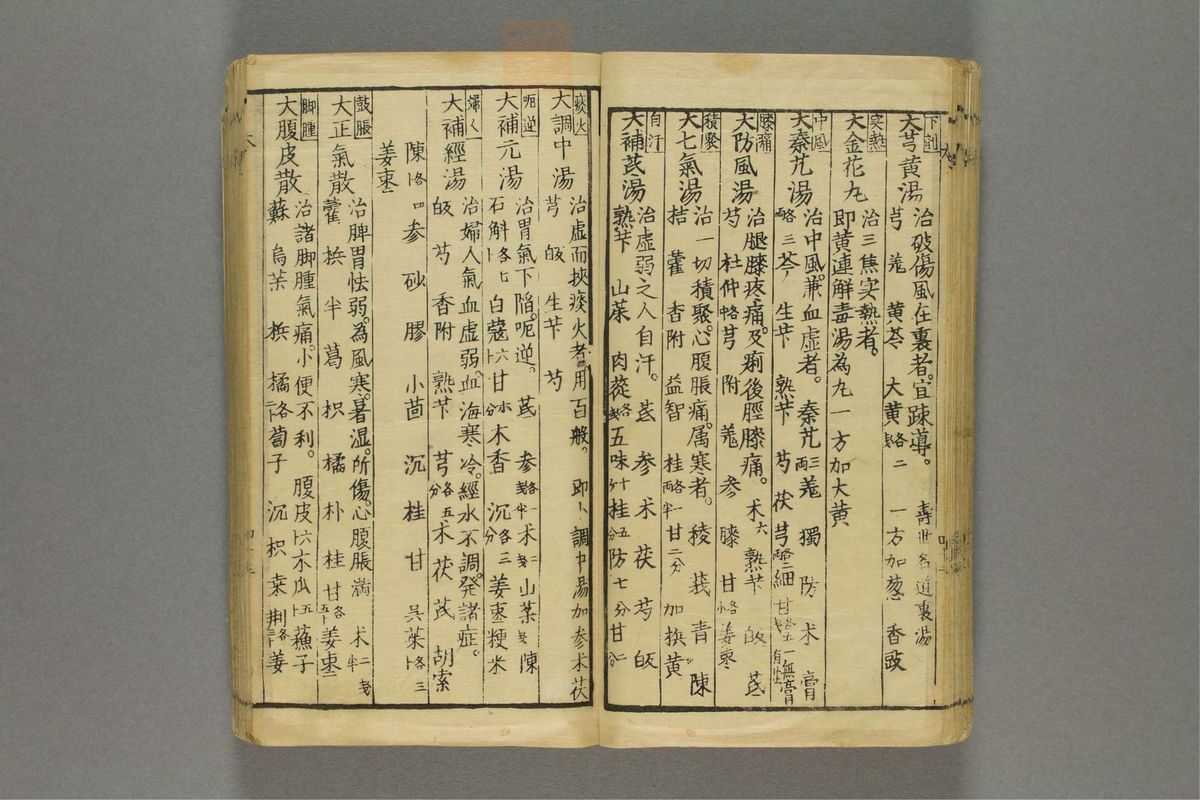 下剤
大芎黄湯 治破傷風在裏者。宜疎導。 壽世名道裏湯
芎 羗 黄芩 大黄各二 一方加葱 香豉
実熱
大金花丸 治三焦実熱者。
即黄連解毒湯為丸一方加大黄
中風
大秦艽湯 治中風。兼血虚者。 秦艽三両 羗 獨 防 木 膏
三 芩 生芐 熟芐 芍 茯 芎 細 甘 一無膏
膝痛
大防風湯 治腿膝疼痛。及痢後脛膝痛。 术六 熟芐 皈 芪
芍 杜仲 芎 附 羗 参 膝 甘 姜棗
積聚
大七氣湯 治一切積聚。心腹脹痛。属寒者。 稜 莪 青 陳
桔 藿 香附 益智 桂 甘二分 加梹黄
自汗
大補芪湯 治虚弱之人自汗。 芪 参 术 茯 芍 皈
熟芐 山茱 肉蓯 五味十 桂五分 防七分 甘二分
痰火
大調中湯 治虚而挾痰火者用百般。 即卜調中湯加参术茯
芎 皈 生芐 芍
呃逆
大補元湯 治胃氣下陷。呃逆。 芪 参 术 山藥 陳
石斛 白蔻 甘 木香 沉各三分 姜棗粳米
婦人
大補經湯 治婦人氣血虚弱。血海寒冷。經水不調。發諸症。
皈 芍 香附 熟芐 芎各五分 术 茯 芪 胡索
陳各四 参 砂 膠 小茴 沉 桂 甘 呉茱各三
姜棗
鼓脹
大正氣散 治脾胃怯弱。為風寒。暑湿。所傷。心腹脹滿 术二半
藿 梹 半 葛 枳 橘 朴 桂 甘 姜棗
脚腫
大腹皮散 治諸脚腫氣痛。小便不利。 腹皮六 木瓜五 蘓子
蘇 烏茱 梹 橘各 蔔子 沉 枳 桒 荆各 姜